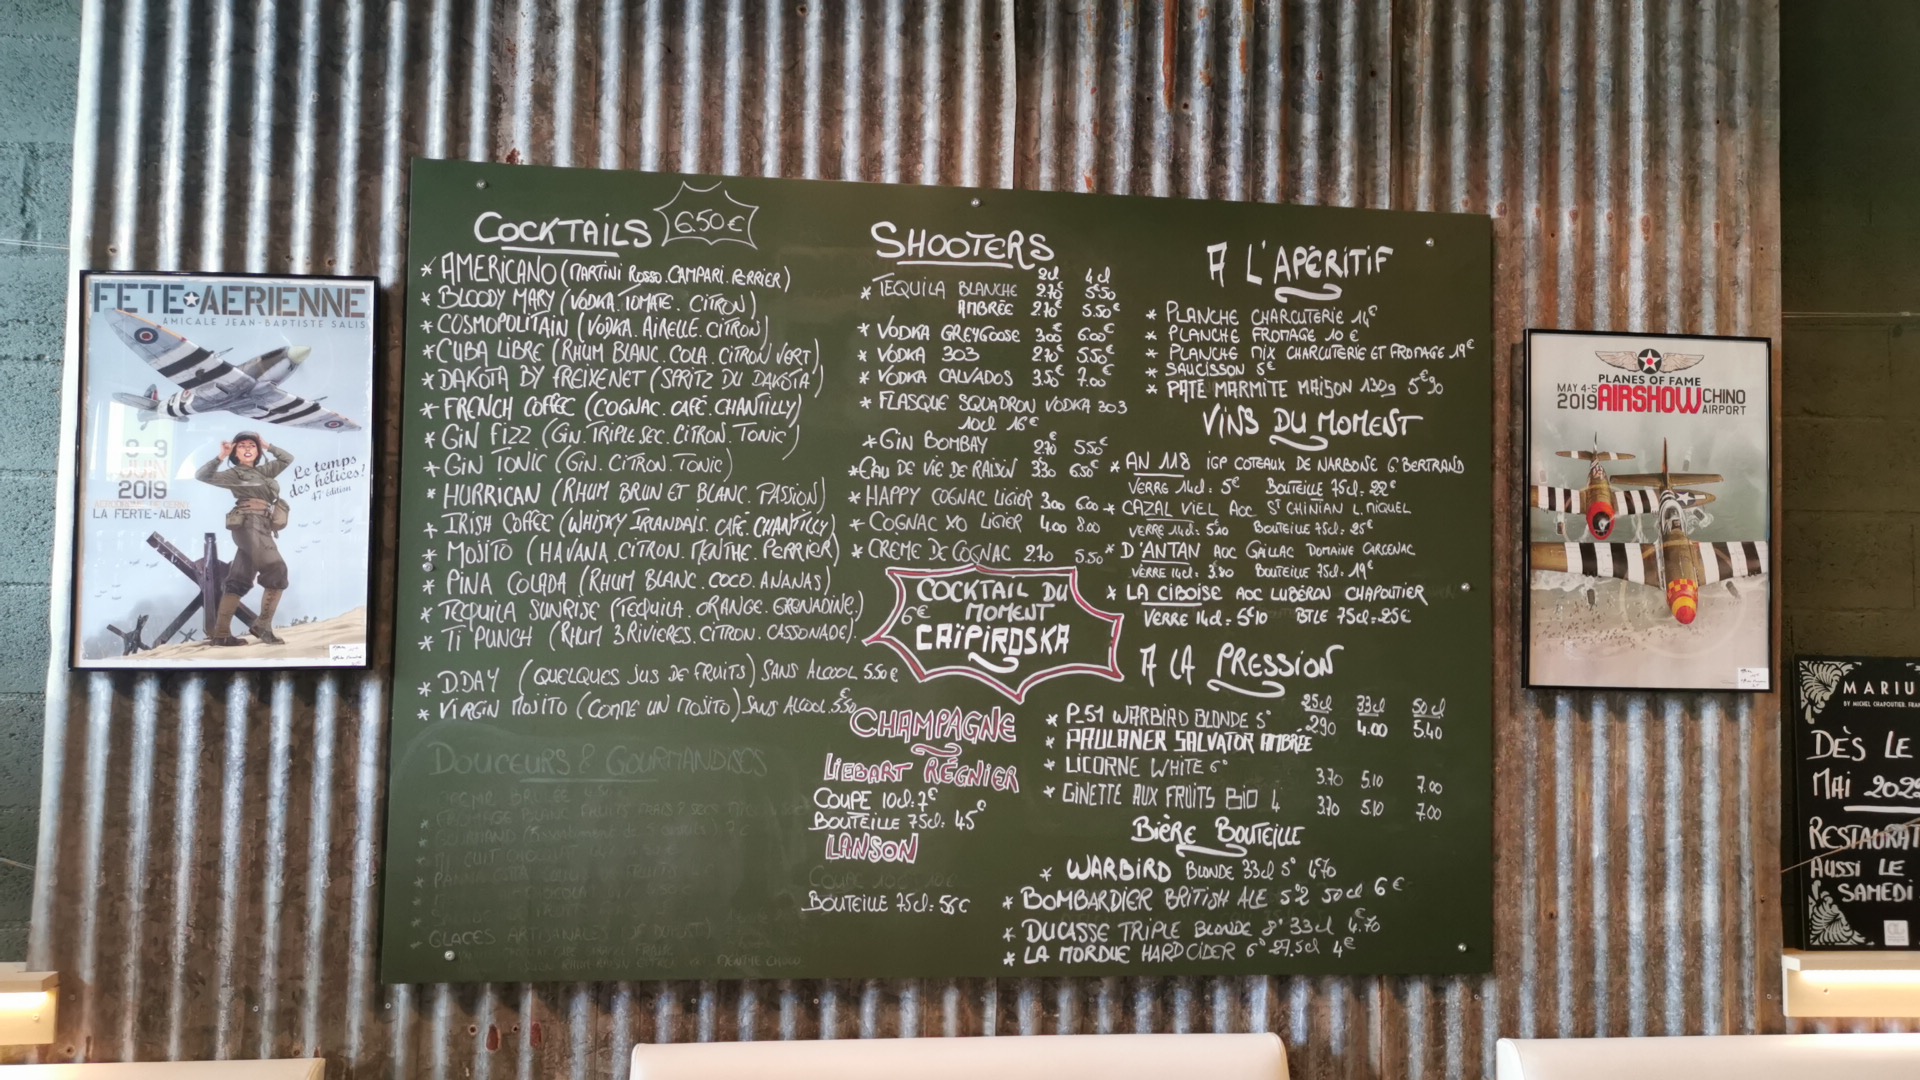 FETE AERIENNE
AMICALE JEAN-BAPTISTE SALIS
JUIN
2019
LA FERTE-ALAIS
Le temps
des hélices!
47e édition
COCKTAILS 6.50€
* AMERICANO (MARTINI ROSSO. CAMPARI. PERRIER)
* BLOODY MARY (VODKA. TOMATE. CITRON)
* COSMOPOLITAIN (VODKA. AIRELLE. CITRON)
* CUBA LIBRE (RHUM BLANC. COLA. CITRON VERT)
* DAKOTA BY FREIXENET (SPRITZ DU DAKOTA)
* FRENCH COFFEE (COGNAC. CAFÉ. CHANTILLY)
* GIN FIZZ (GIN. TRIPLE SEC. CITRON. TONIC)
* GIN TONIC (GIN. CITRON. TONIC)
* HURRICAN (RHUM BRUN ET BLANC. PASSION)
* IRISH COFFEE (WHISKY IRLANDAIS. CAFÉ. CHANTILLY)
* MOJITO (HAVANA. CITRON. MENTHE. PERRIER)
* PINA COLADA (RHUM BLANC. COCO. ANANAS)
* TEQUILA SUNRISE (TEQUILA. ORANGE. GRENADINE)
* TI PUNCH (RHUM 3 RIVIERES. CITRON. CASSONADE).
* D.DAY (QUELQUES JUS DE FRUITS) SANS ALCOOL 5.50€
* VIRGIN MOJITO (COMME UN MOJITO) SANS ALCOOL 5.50€
DOUCEURS & GOURMANDISES
GLACES ARTISANALES
SHOOTERS
2cl 4cl
* TEQUILA BLANCHE 2.70€ 5.50€
AMBRÉE 2.70€ 5.50€
* VODKA GREYGOOSE 3.00€ 6.00€
* VODKA 303 2.70€ 5.50€
* VODKA CALVADOS 3.50€ 7.00€
* FLASQUE SQUADRON VODKA 303
10cl 16€
* GIN BOMBAY 2.70€ 5.50€
* EAU DE VIE DE RAISIN 3.30 6.50€
* HAPPY COGNAC LIGIER 3.00 6.00
* COGNAC XO LIGIER 4.00 8.00
* CREME DE COGNAC 2.70 5.50
COCKTAIL DU
6€ MOMENT
CAÏPIROSKA
CHAMPAGNE
LIEBART RÉGNIER
COUPE 10cl: 7€
BOUTEILLE 75cl: 45€
LANSON
COUPE 10cl 10€
BOUTEILLE 75cl: 56€
A L'APÉRITIF
* PLANCHE CHARCUTERIE 14€
* PLANCHE FROMAGE 10€
* PLANCHE MIX CHARCUTERIE ET FROMAGE 19€
* SAUCISSON 5€
* PATÉ MARMITE MAISON 130g 5€90
VINS DU MOMENT
* AN 118 IGP COTEAUX DE NARBONE G. BERTRAND
VERRE 14cl: 5€ BOUTEILLE 75cl: 22€
* CAZAL VIEL AOC ST CHINIAN L. MIQUEL
VERRE 14cl: 5€10 BOUTEILLE 75cl: 25€
* D'ANTAN AOC GAILLAC DOMAINE CARCENAC
VERRE 14cl: 3.80 BOUTEILLE 75cl: 19€
* LA CIBOISE AOC LUBÉRON CHAPOUTIER
VERRE 14cl: 5€10 BTLE 75cl: 25€
A LA PRESSION
25cl 33cl 50cl
* P-51 WARBIRD BLONDE 5° 2.90 4.00 5.40
* PAULANER SALVATOR AMBRÉE
* LICORNE WHITE 6° 3.70 5.10 7.00
* GINETTE AUX FRUITS BIO 4 3.70 5.10 7.00
BIÈRE BOUTEILLE
* WARBIRD BLONDE 33cl 5° 4.70
* BOMBARDIER BRITISH ALE 5°2 50cl 6€
* DUCASSE TRIPLE BLONDE 8° 33cl 4€70
* LA MORDUE HARD CIDER 6° 27.5cl 4€
PLANES OF FAME
MAY 4-5
2019 AIRSHOW CHINO
AIRPORT
MARIU
BY MICHEL CHAPOUTIER. FRAN
DÈS LE
MAI 202
RESTAURAT
AUSSI LE
SAMEDI